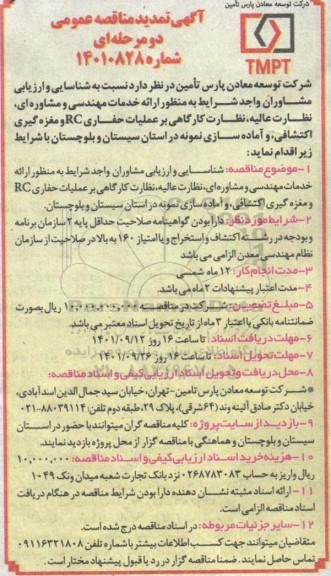 شرکت توسعه معادن پارس تأمین
آگهی تمدید مناقصه عمومی
دو مرحله ای
شماره ۱۴۰۱۰۸۲۸
TMPT
شرکت توسعه معادن پارس تأمین در نظر دارد نسبت به شناسایی و ارزیابی
مشاوران واجد شرایط به منظور ارائه خدمات مهندسی و مشاوره ای،
نظارت عالیه، نظارت کارگاهی بر عملیات حفاری RC و مغزه گیری
اکتشافی، و آماده سازی نمونه در استان سیستان و بلوچستان با شرایط
زیر اقدام نماید:
۱-موضوع مناقصه: شناسایی و ارزیابی مشاوران واجد شرایط به منظور ارائه
خدمات مهندسی و مشاوره ای، نظارت عالیه، نظارت کارگاهی بر عملیات حفاری RC
و مغزه گیری اکتشافی، و آماده سازی نمونه در استان سیستان و بلوچستان.
۲-شرایط مورد نیاز: دارا بودن گواهینامه صلاحیت حداقل پایه ۲ سازمان برنامه
و بودجه در رشته اکتشاف و استخراج و یا امتیاز ۱۶۰ به بالا در صلاحیت از سازمان
نظام مهندسی معدن الزامی می باشد
۳-مدت انجام کار: ۱۲ ماه شمسی
۴-مدت اعتبار پیشنهادات ۲ ماه می باشد.
۵-مبلغ تضمین: شرکت در مناقصه ریال بصورت
ضمانتنامه بانکی با اعتبار ۳ ماه از تاریخ تحویل اسناد معتبر می باشد.
۶-مهلت دریافت اسناد: تا ساعت ۱۶ روز ۱۴۰۱/۰۹/۱۲
۷-مهلت تحویل اسناد: تا ساعت ۱۶ روز ۱۴۰۱/۰۹/۲۶
۸-محل دریافت و تحویل اسناد ارزیابی کیفی و اسناد مناقصه:
● شرکت توسعه معادن پارس تامین-تهران، خیابان سید جمال الدین اسدآبادی،
خیابان دکتر صادق آئینه وند (۶۴ شرقی)، پلاک ۲۹، طبقه دوم تلفن: ۸۸۰۳۹۱۱۴-۰۲۱
۹-بازدید از سایت پروژه: کلیه مناقصه گران میتوانند با حضور در استان
سیستان و بلوچستان و هماهنگی با مناقصه گزار از محل پروژه بازدید نمایند.
۱۰-هزینه خرید اسناد ارزیابی کیفی و اسناد مناقصه: ۱۰,۰۰۰,۰۰۰
ریال واریز به حساب ۰۲۶۸۷۸۳۰۸۳ نزد بانک تجارت شعبه میدان ونک ۱۰۴۹
۱۱-ارائه اسناد مثبته نشان دهنده دارا بودن شرایط مناقصه در هنگام دریافت
اسناد مناقصه الزامی است.
۱۲-سایر جزئیات مربوطه: در اسناد مناقصه درج شده است.
متقاضیان میتوانند جهت کسب اطلاعات بیشتر با شماره تلفن ۰۹۱۱۶۳۲۱۸۰۸
تماس حاصل نمایند. ضمنا مناقصه گزار در رد یا قبول پیشنهاد مختار است.